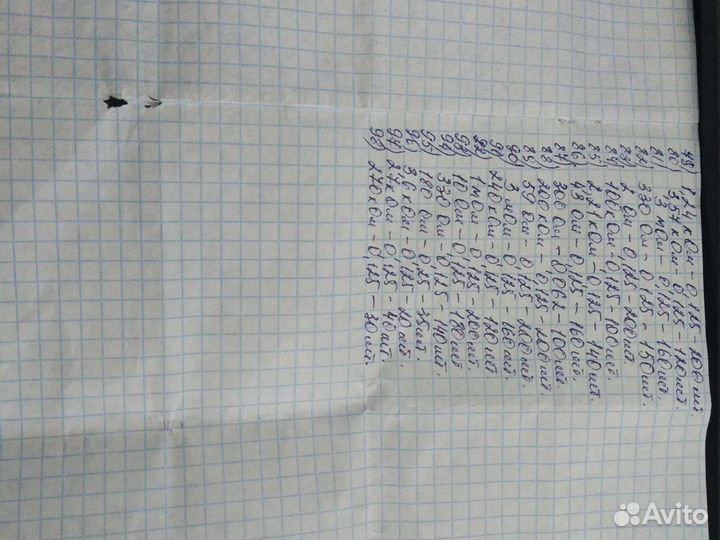 79) 8,24 ком - 0,125 - 200 шт.
80) 3,57 ком - 0,125 - 180 шт.
81) 3 мом - 0,125 - 160 шт.
82) 330 Ом - 0,25 - 150 шт.
83) 2 Ом - 0,125 - 200 шт
84) 100 ком - 0,125 - 100 шт.
85) 2,21 ком - 0,125 - 140 шт.
86) 43 Ом - 0,125 - 160 шт.
87) 300 Ом - 0,062 - 100 шт.
88) 200 ком - 0,125 - 200 шт.
89) 59 Ом - 0,125 - 200 шт.
90) 3 мом - 0,125 - 160 шт.
91) 240 ком - 0,125 - 120 шт.
92) 1 мом - 0,125 - 200 шт.
93) 10 Ом - 0,125 - 180 шт
94) 330 Ом - 0,125 - 140 шт.
95) 180 Ом - 0,25 - 35 шт.
96) 3,6 ком - 0,125 - 20 шт.
97) 27 ком - 0,125 - 40 шт.
98) 270 ком - 0,125 - 30 шт.
Avito